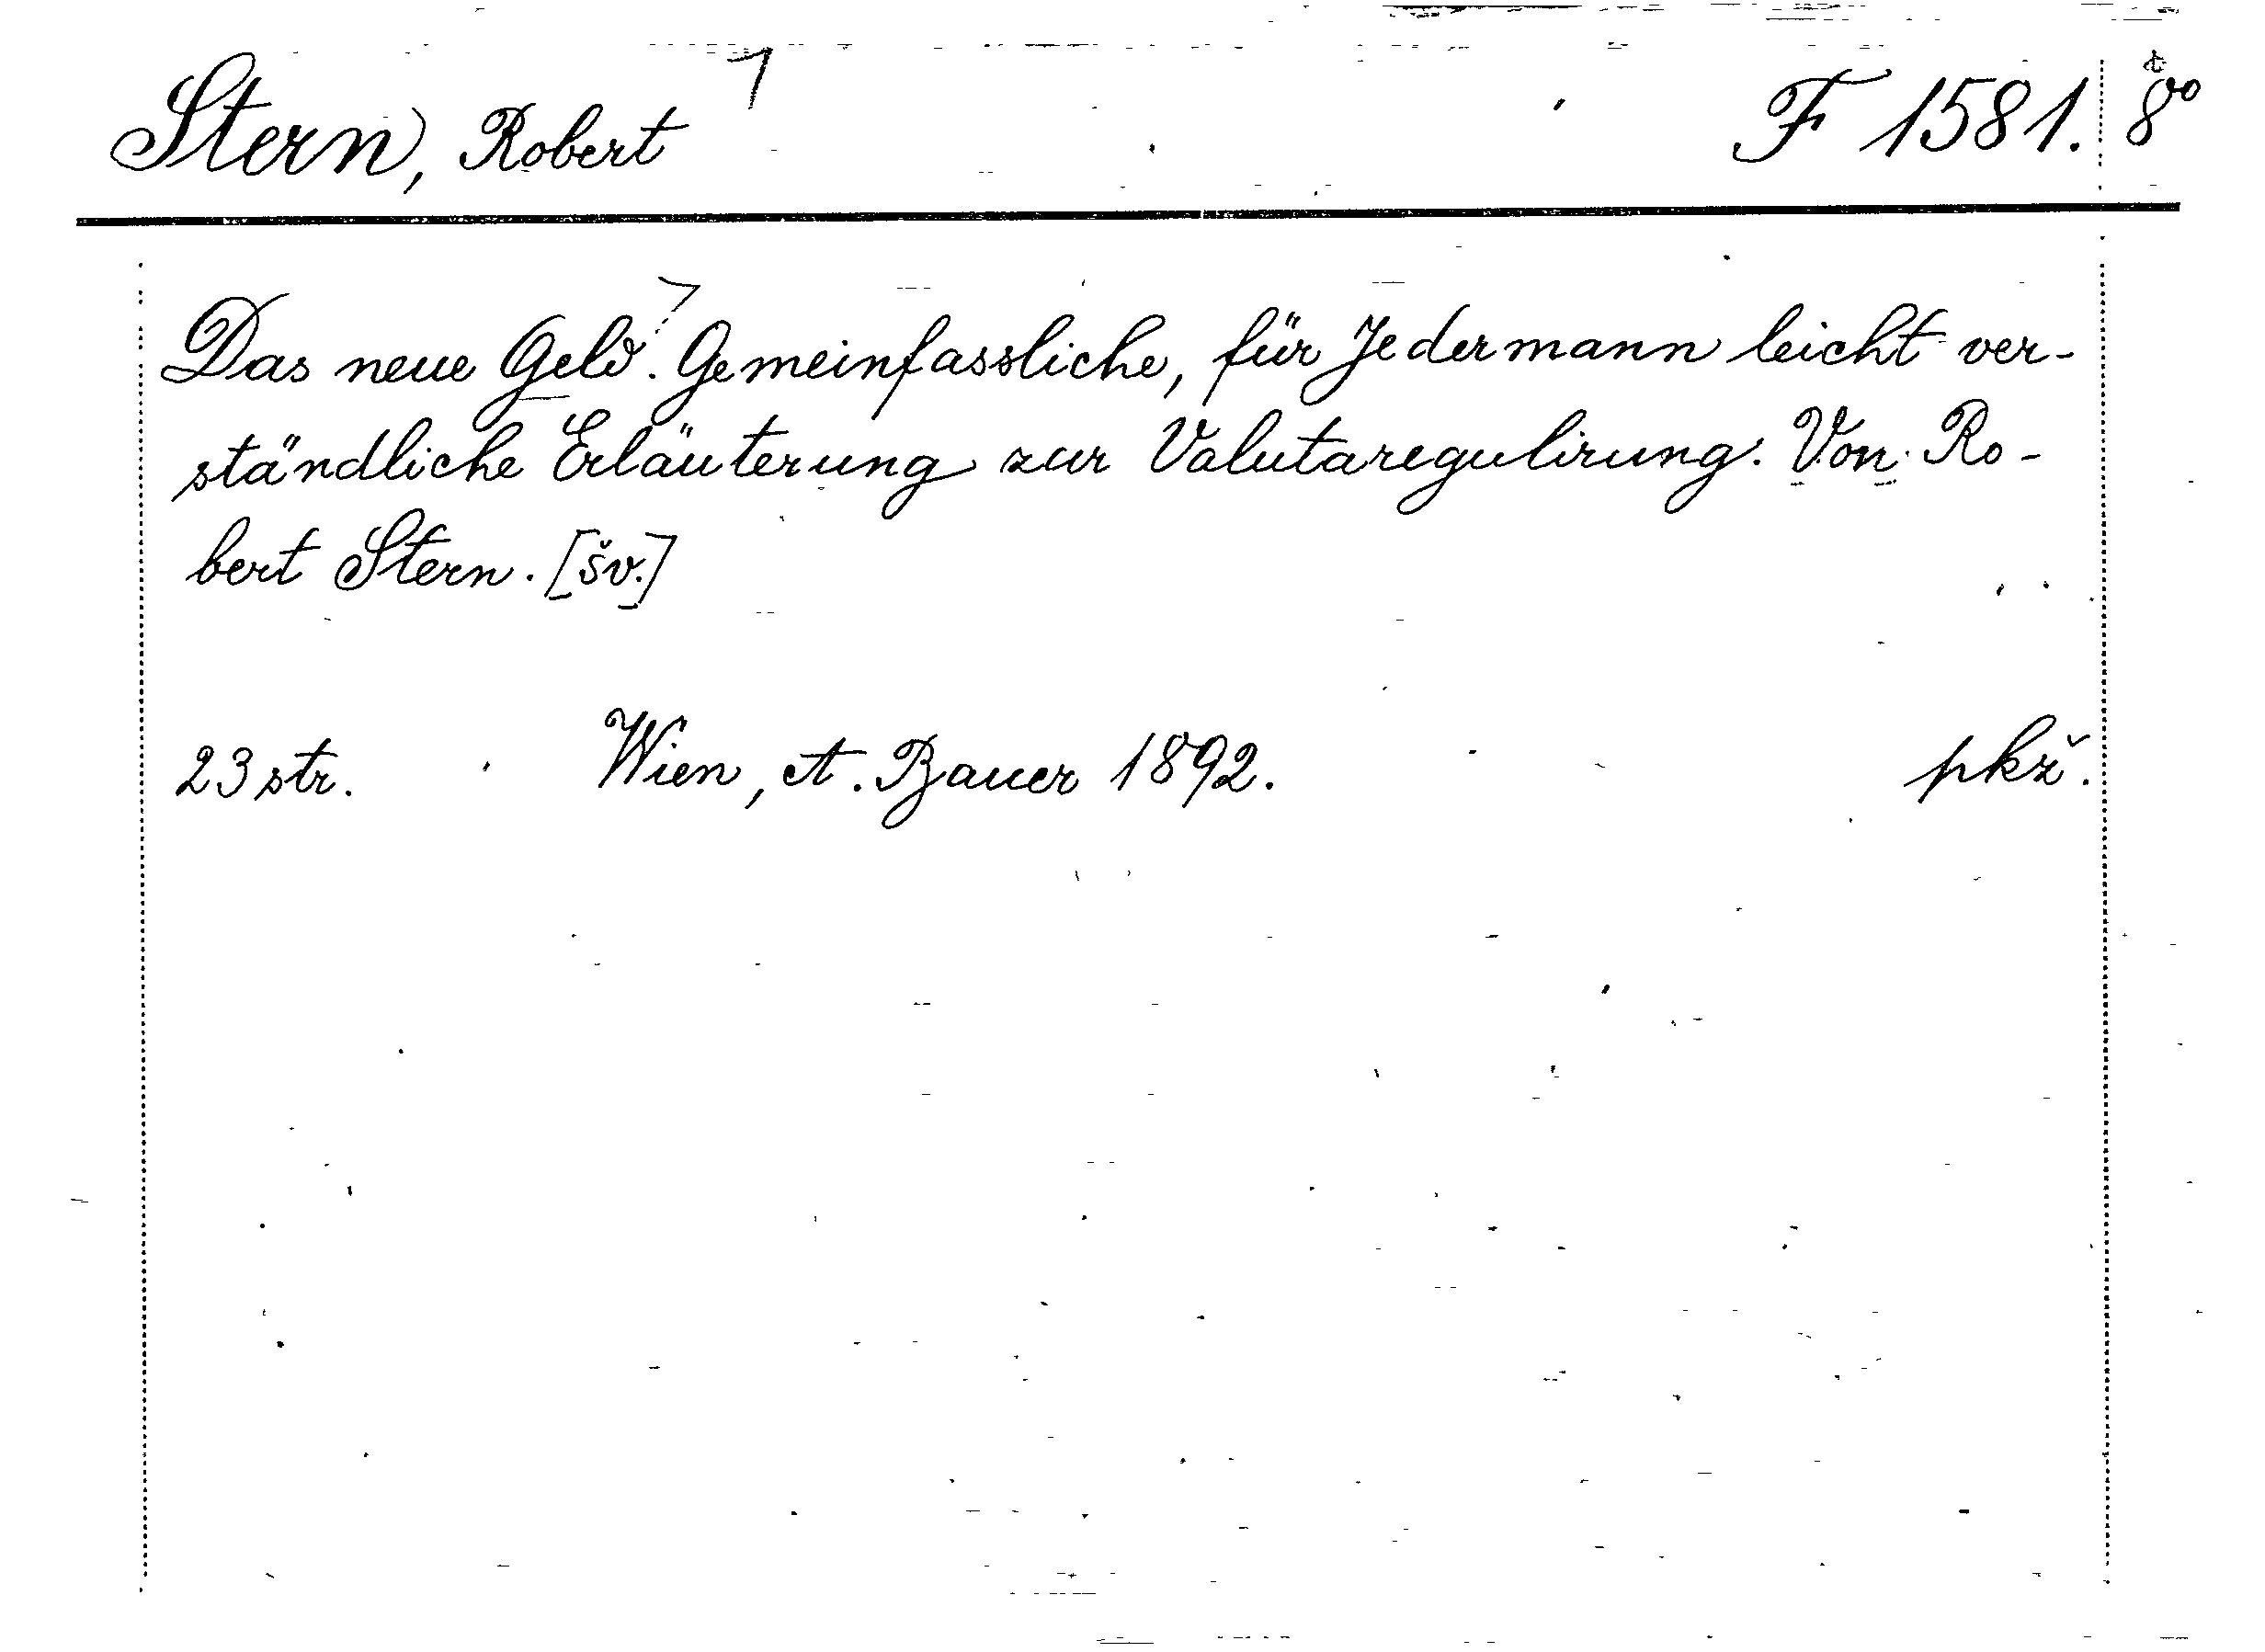 Stern, Robert F 1581. 8º
Das neue Geld. Gemeinfassliche, für Jedermann leicht ver-
ständliche Erläuterung zur Valutaregulirung. Von Ro-
bert Stern. [šv.]
23 str. Wien, A. Bauer 1892. pkž.